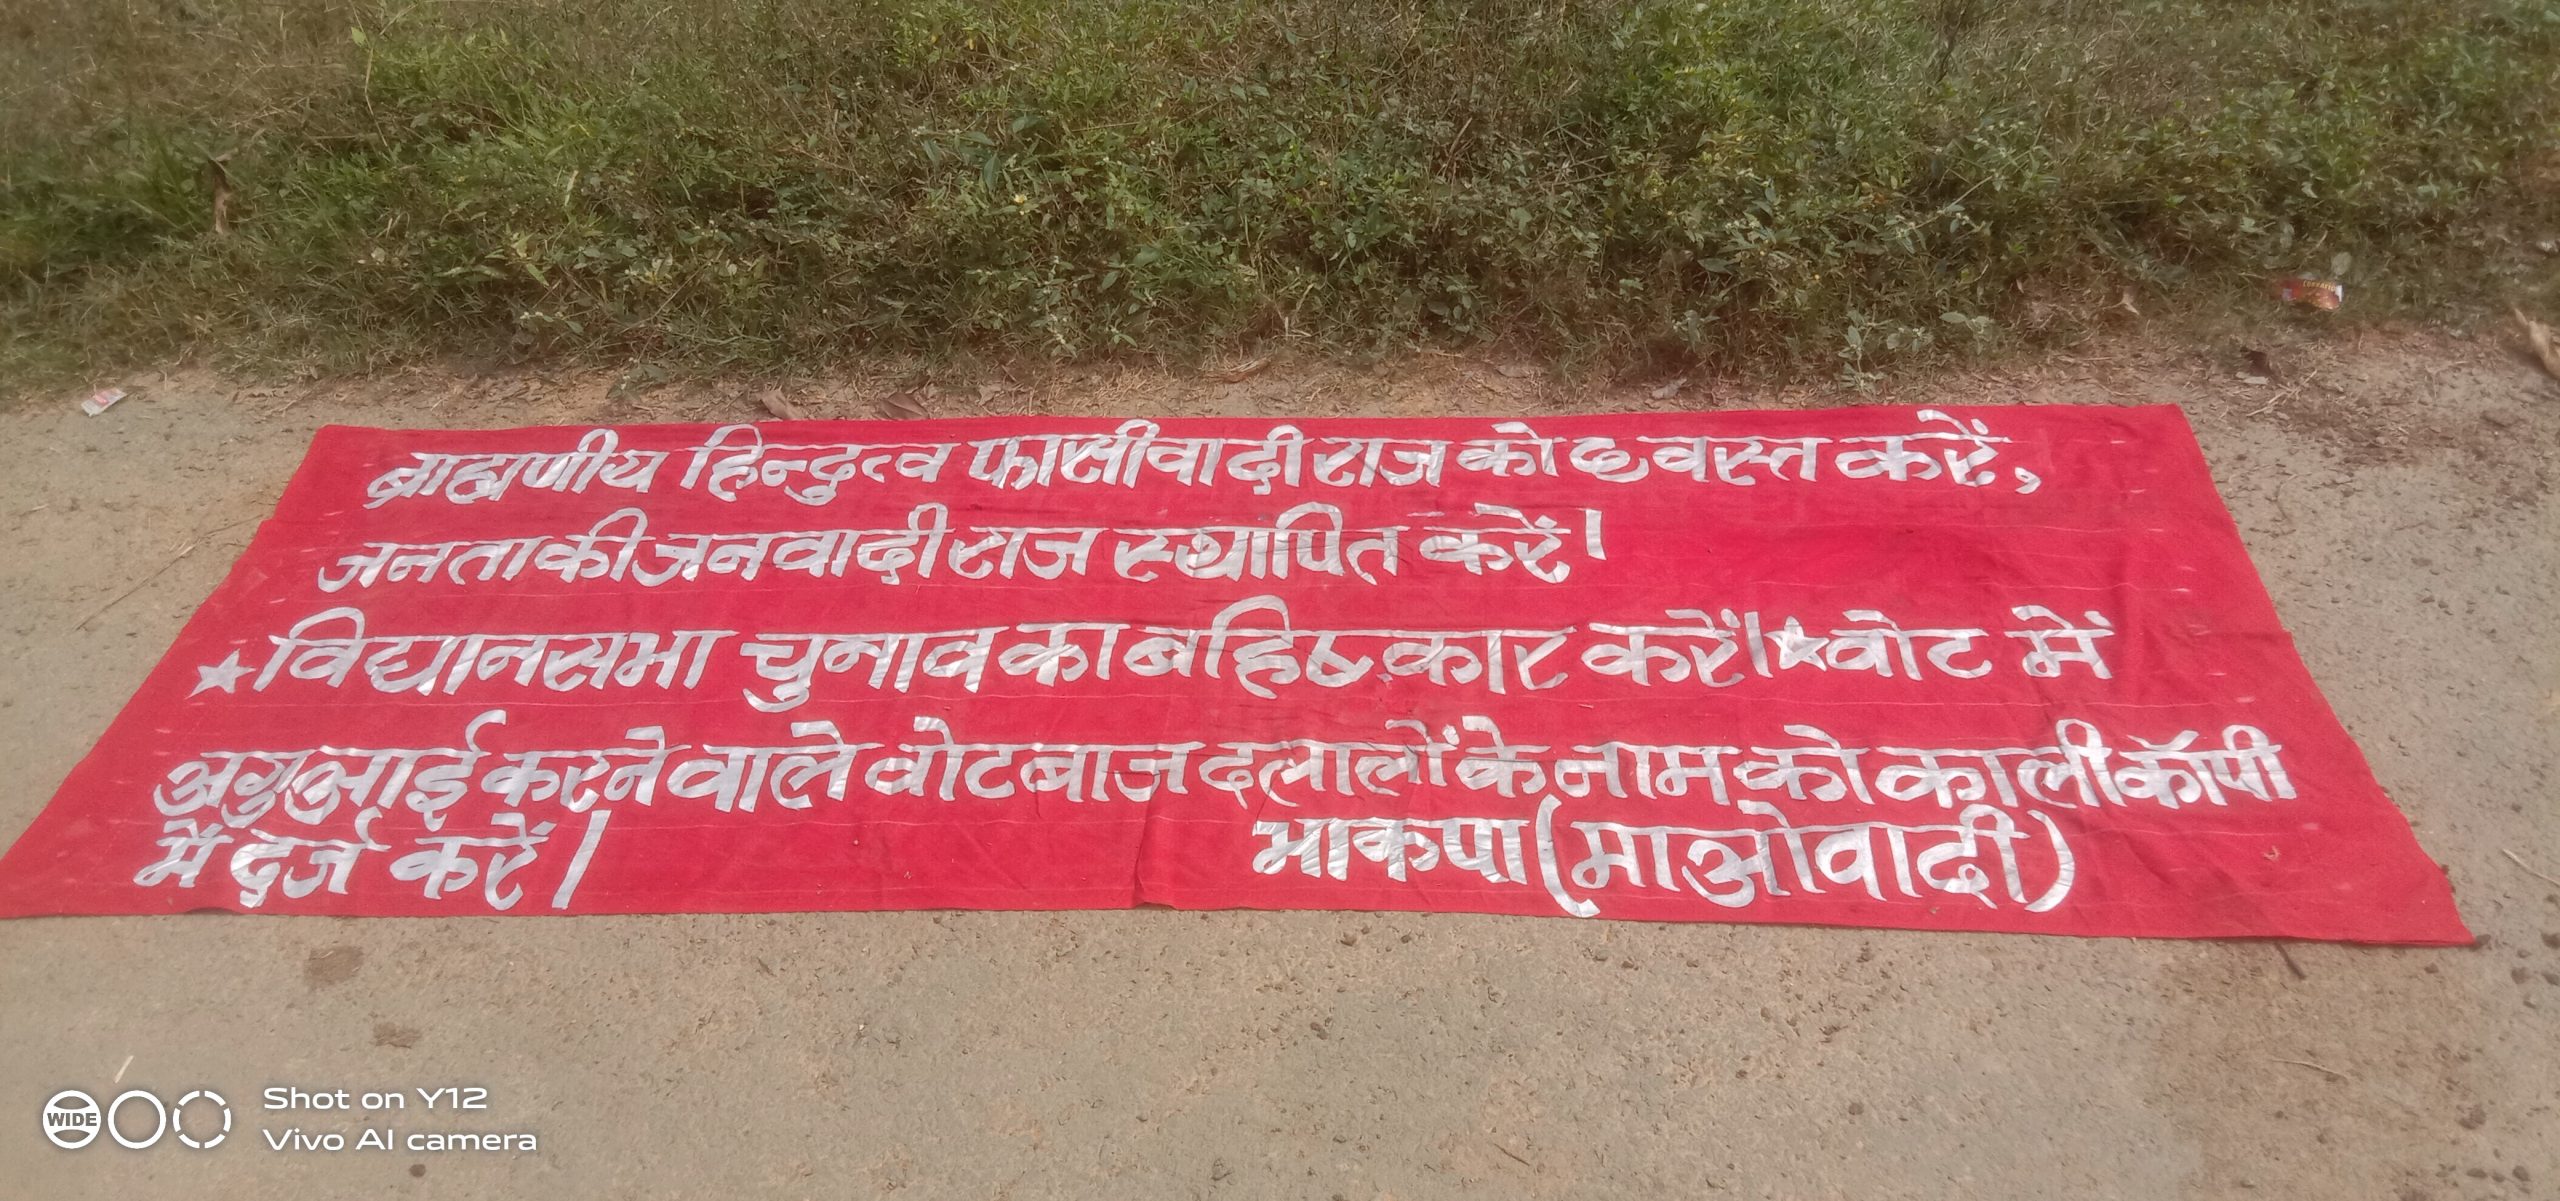 ब्राह्मणीय हिन्दुत्व फासीवादी राज को ध्वस्त करें,
जनता की जनवादी राज स्थापित करें।
★विधानसभा चुनाव का बहिष्कार करें।★वोट में
अगुआई करने वाले वोटबाज दलालों के नाम को काली कॉपी
में दर्ज करें।
भाकपा (माओवादी)
WIDE
Shot on Y12
Vivo AI camera